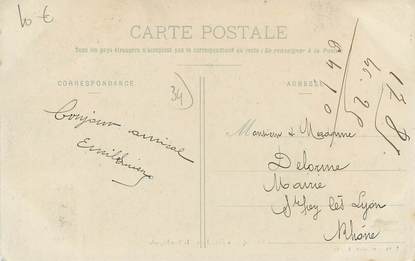 10 €
CARTE POSTALE
Tous les pays étrangers n'acceptent pas la correspondance au recto (Se renseigner à la Poste)
CORRESPONDANCE
ADRESSE
34
Bonjour amical
Monsieur & Madame
Delorme
Mairie
Ste Foy lès Lyon
Rhône